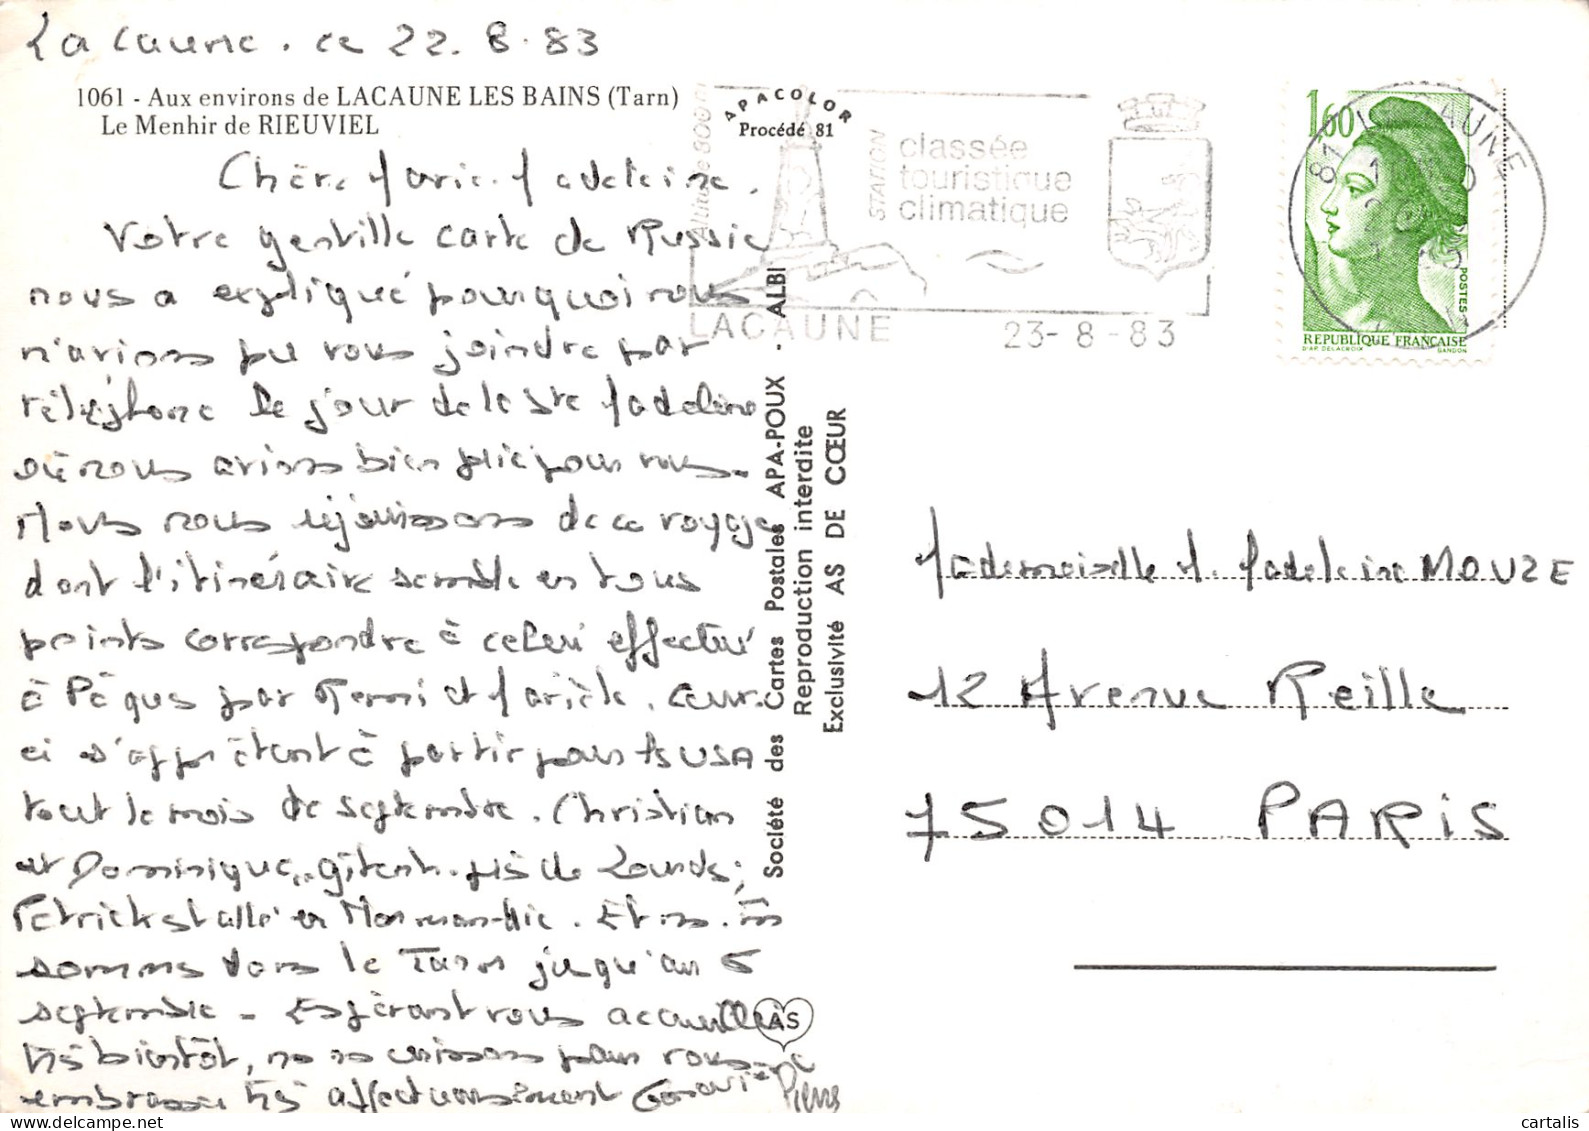 La Caune. ce 22.8.83
1061 - Aux environs de LACAUNE LES BAINS (Tarn)
Le Menhir de RIEUVIEL
APACOLOR
Procédé 81
Chère Marie-Madeleine.
Votre gentille carte de Russie
nous a expliqué pourquoi nous
n'avions pu vous joindre par
téléphone le jour de la Ste Madeleine
où nous avions bien prié pour vous.
Nous nous réjouissons de ce voyage
dont l'itinéraire semble en tous
points correspondre à celui effectué
à Pâques par Rémi et Marièle. Ceux-
ci s'apprêtant à partir pour les USA
tout le mois de septembre. Christian
et Dominique gîtent près de Lourdes;
Patrick est allé en Normandie. Et ns. ns
sommes dans le Tarn jusqu'au 5
septembre - Espérant vous accueillir
très bientôt, ns ns unissons pour vous
embrasser très affectueusement
Pierre
Altitude 800 m
STATION
classée
touristique
climatique
LACAUNE
23-8-83
Société des Cartes Postales APA-POUX - ALBI
Reproduction interdite
Exclusivité AS DE CŒUR
AS
81 LACAUNE
1,60
POSTES
REPUBLIQUE FRANÇAISE
D'AP. DELACROIX GANDON
Mademoiselle M. Madeleine MOUZE
12 Avenue Reille
75014 PARIS
cartalis